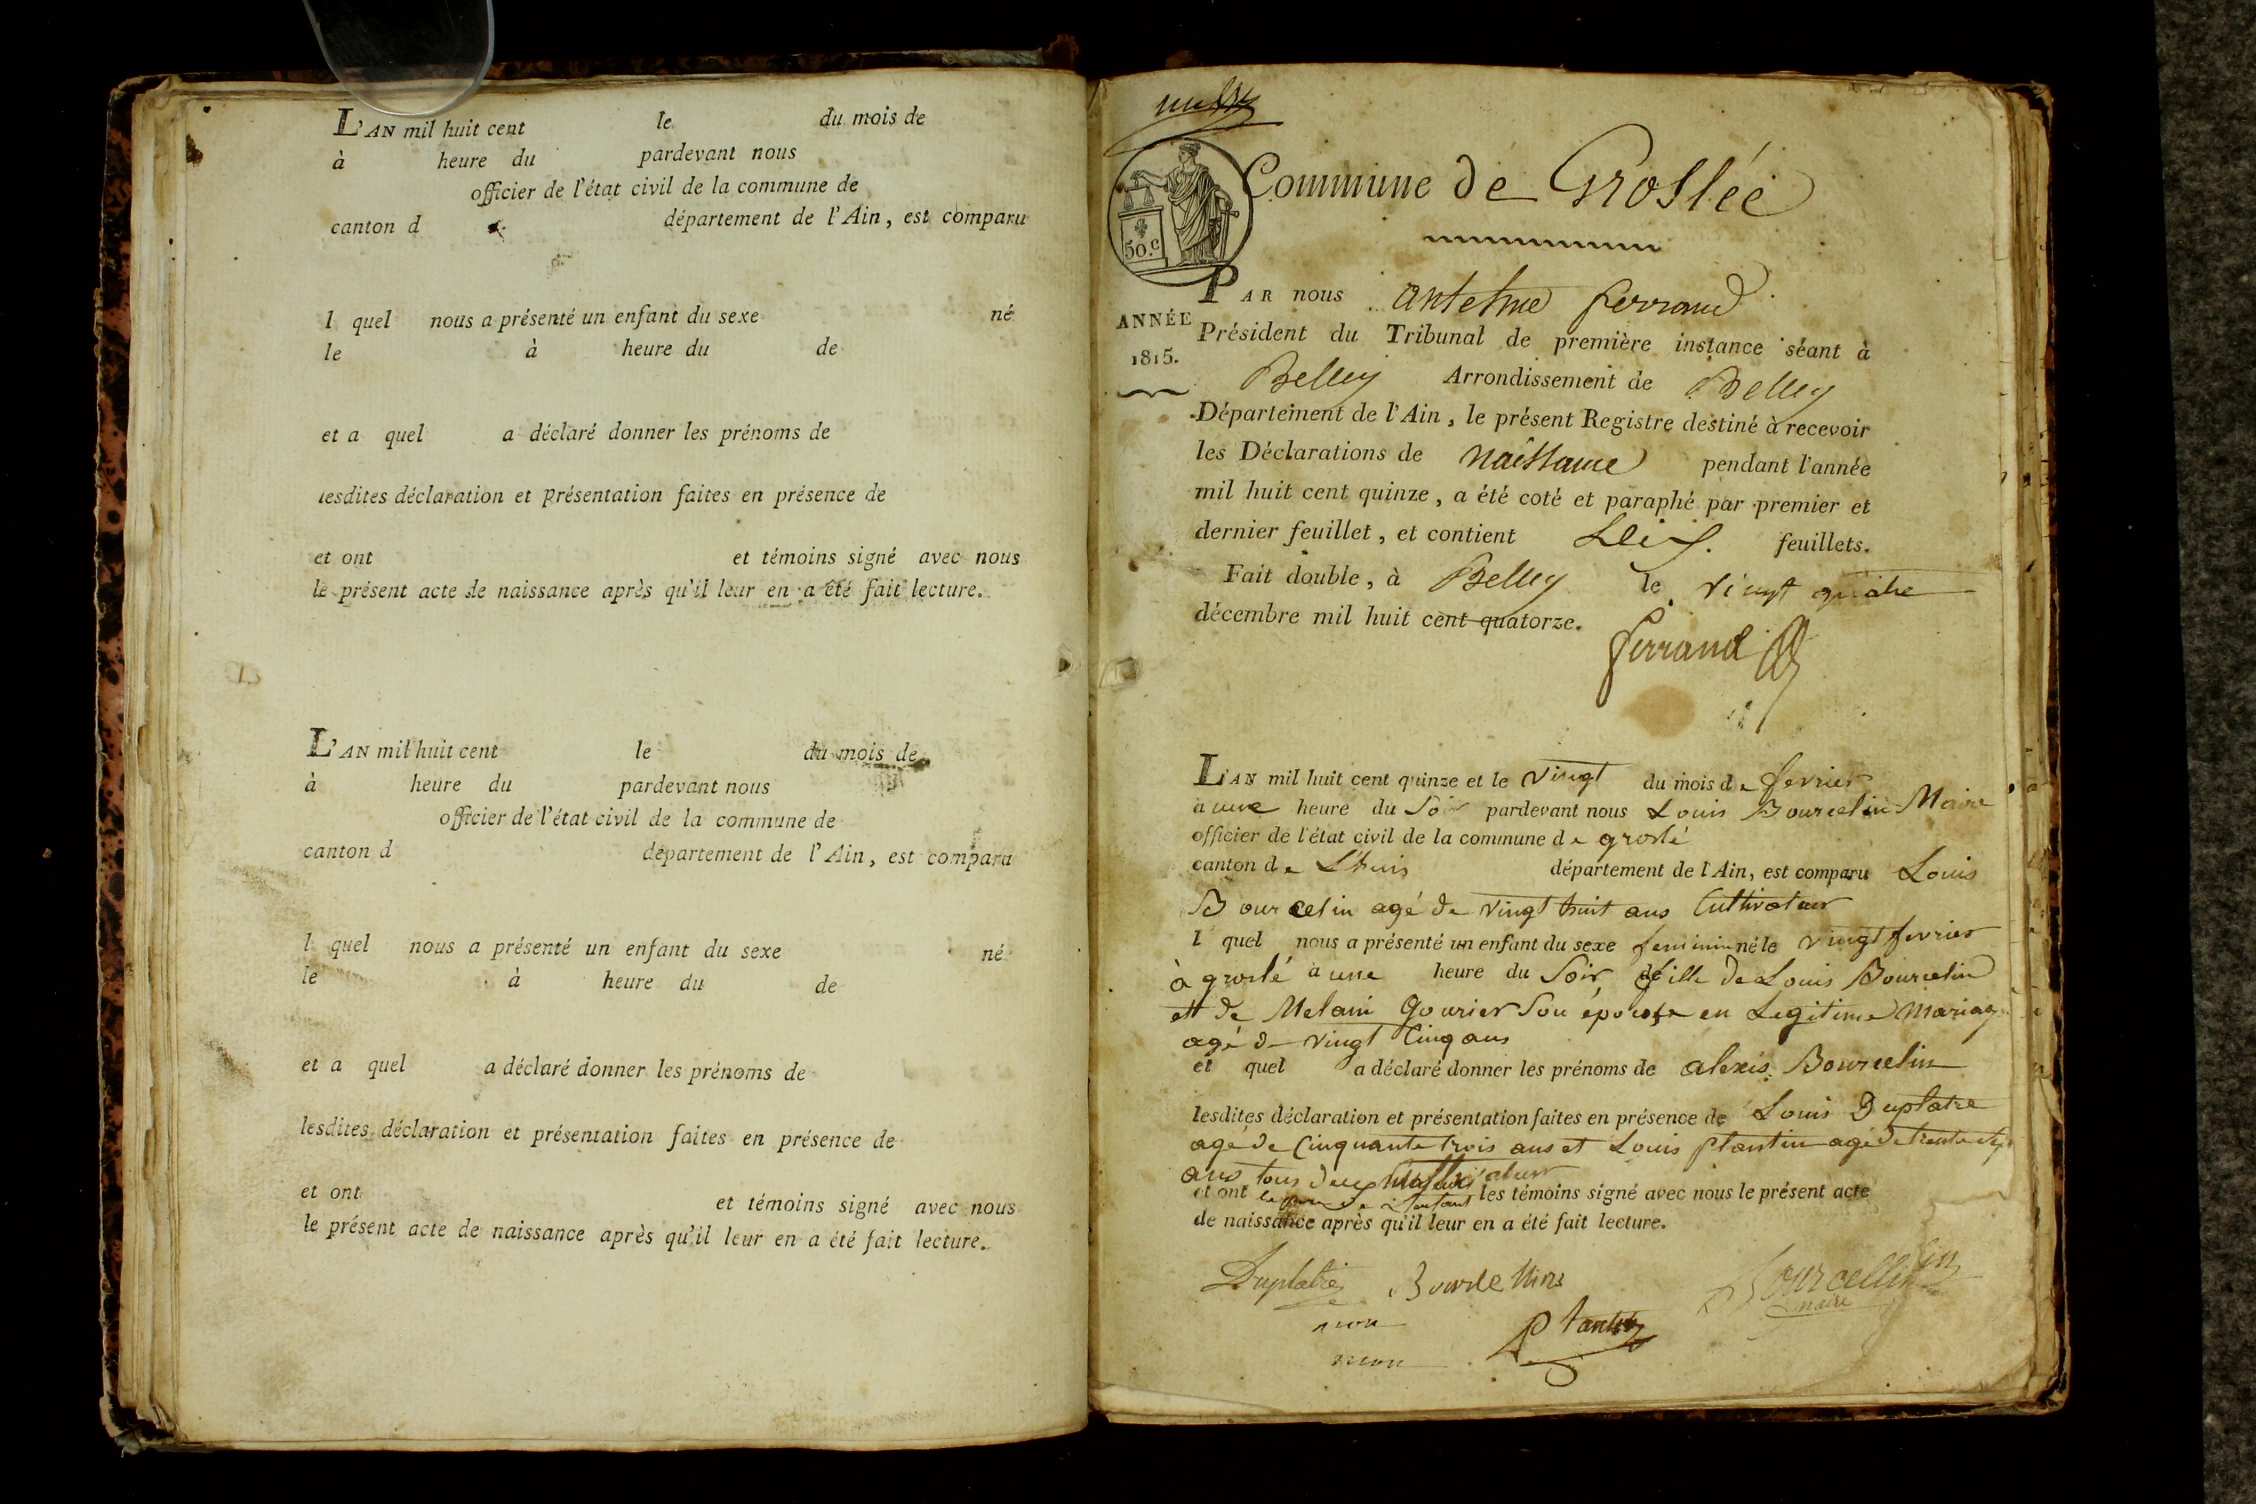 L'AN mil huit cent le du mois de
à heure du pardevant nous
officier de l'état civil de la commune de
canton d département de l'Ain, est comparu
l quel nous a présenté un enfant du sexe né
le à heure du de
et a quel a déclaré donner les prénoms de
lesdites déclaration et présentation faites en présence de
et ont et témoins signé avec nous
le présent acte de naissance après qu'il leur en a été fait lecture.
L'AN mil huit cent le du mois de
à heure du pardevant nous
officier de l'état civil de la commune de
canton d département de l'Ain, est comparu
l quel nous a présenté un enfant du sexe né
le à heure du de
et a quel a déclaré donner les prénoms de
lesdites déclaration et présentation faites en présence de
et ont et témoins signé avec nous
le présent acte de naissance après qu'il leur en a été fait lecture.
Commune de Groslée
50.c
ANNÉE
1815.
PAR nous antelme ferrand
Président du Tribunal de première instance séant à
Belley Arrondissement de Belley
Département de l'Ain, le présent Registre destiné à recevoir
les Déclarations de naissance pendant l'année
mil huit cent quinze, a été coté et paraphé par premier et
dernier feuillet, et contient feuillets.
Fait double, à Belley le vingt quatre
décembre mil huit cent quatorze.
ferrand
L'AN mil huit cent quinze et le vingt du mois de fevrier
a une heure du Soir pardevant nous Louis Bourcelin Maire
officier de l'état civil de la commune de groslé
canton de Lhuis département de l'Ain, est comparu Louis
Bourcelin agé de vingt huit ans Cultivateur
l quel nous a présenté un enfant du sexe feminin né le vingt fevrier
à groslé a une heure du Soir, de fille de Louis Bourcelin
et de Melani Gourier Son épouse en Legitime Mariage
agé de vingt Cinq ans
et quel a déclaré donner les prénoms de alexis Bourcelin
lesdites déclaration et présentation faites en présence de Louis Duplatre
agé de Cinquante trois ans et Louis plantin agé de trente
ans tous deux Cultivateur
et ont le pere de l'enfant les témoins signé avec nous le présent acte
de naissance après qu'il leur en a été fait lecture.
Duplatre Bourcellin
Bourcellin
maire
Plantin